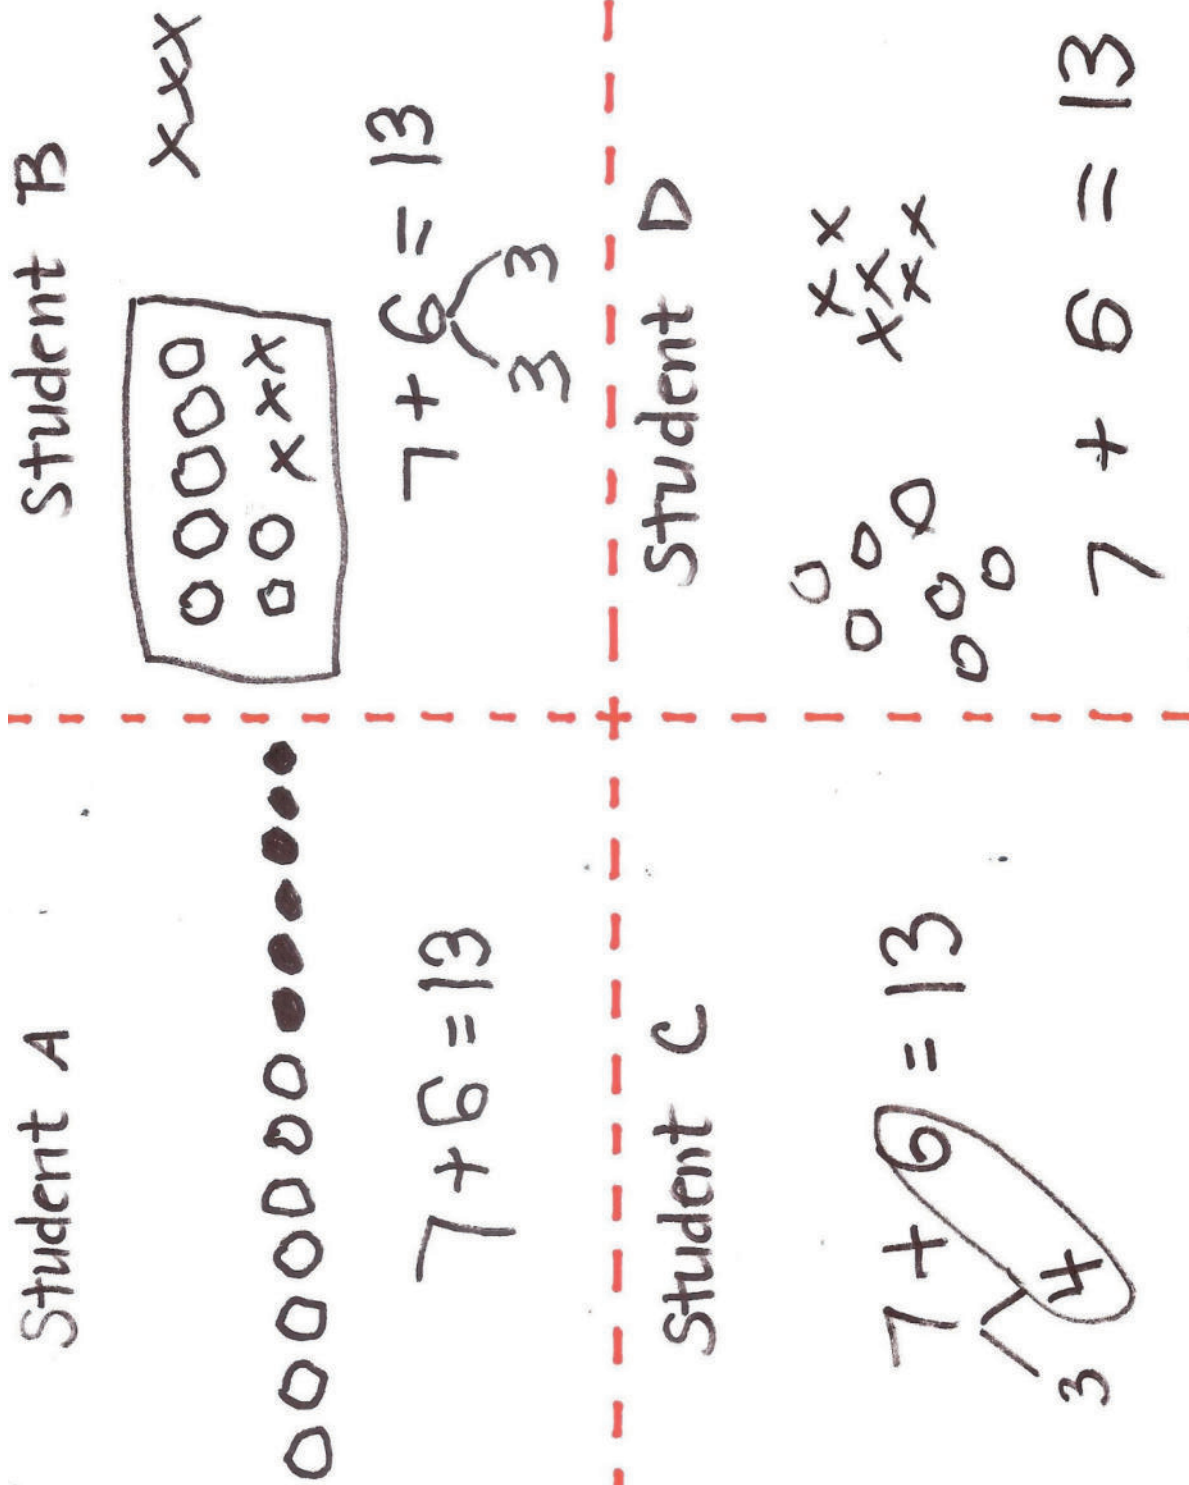 Student A
7 + 6 = 13
Student B
7 + 6 = 13
3 3
Student C
7 + 6 = 13
3 4
Student D
7 + 6 = 13